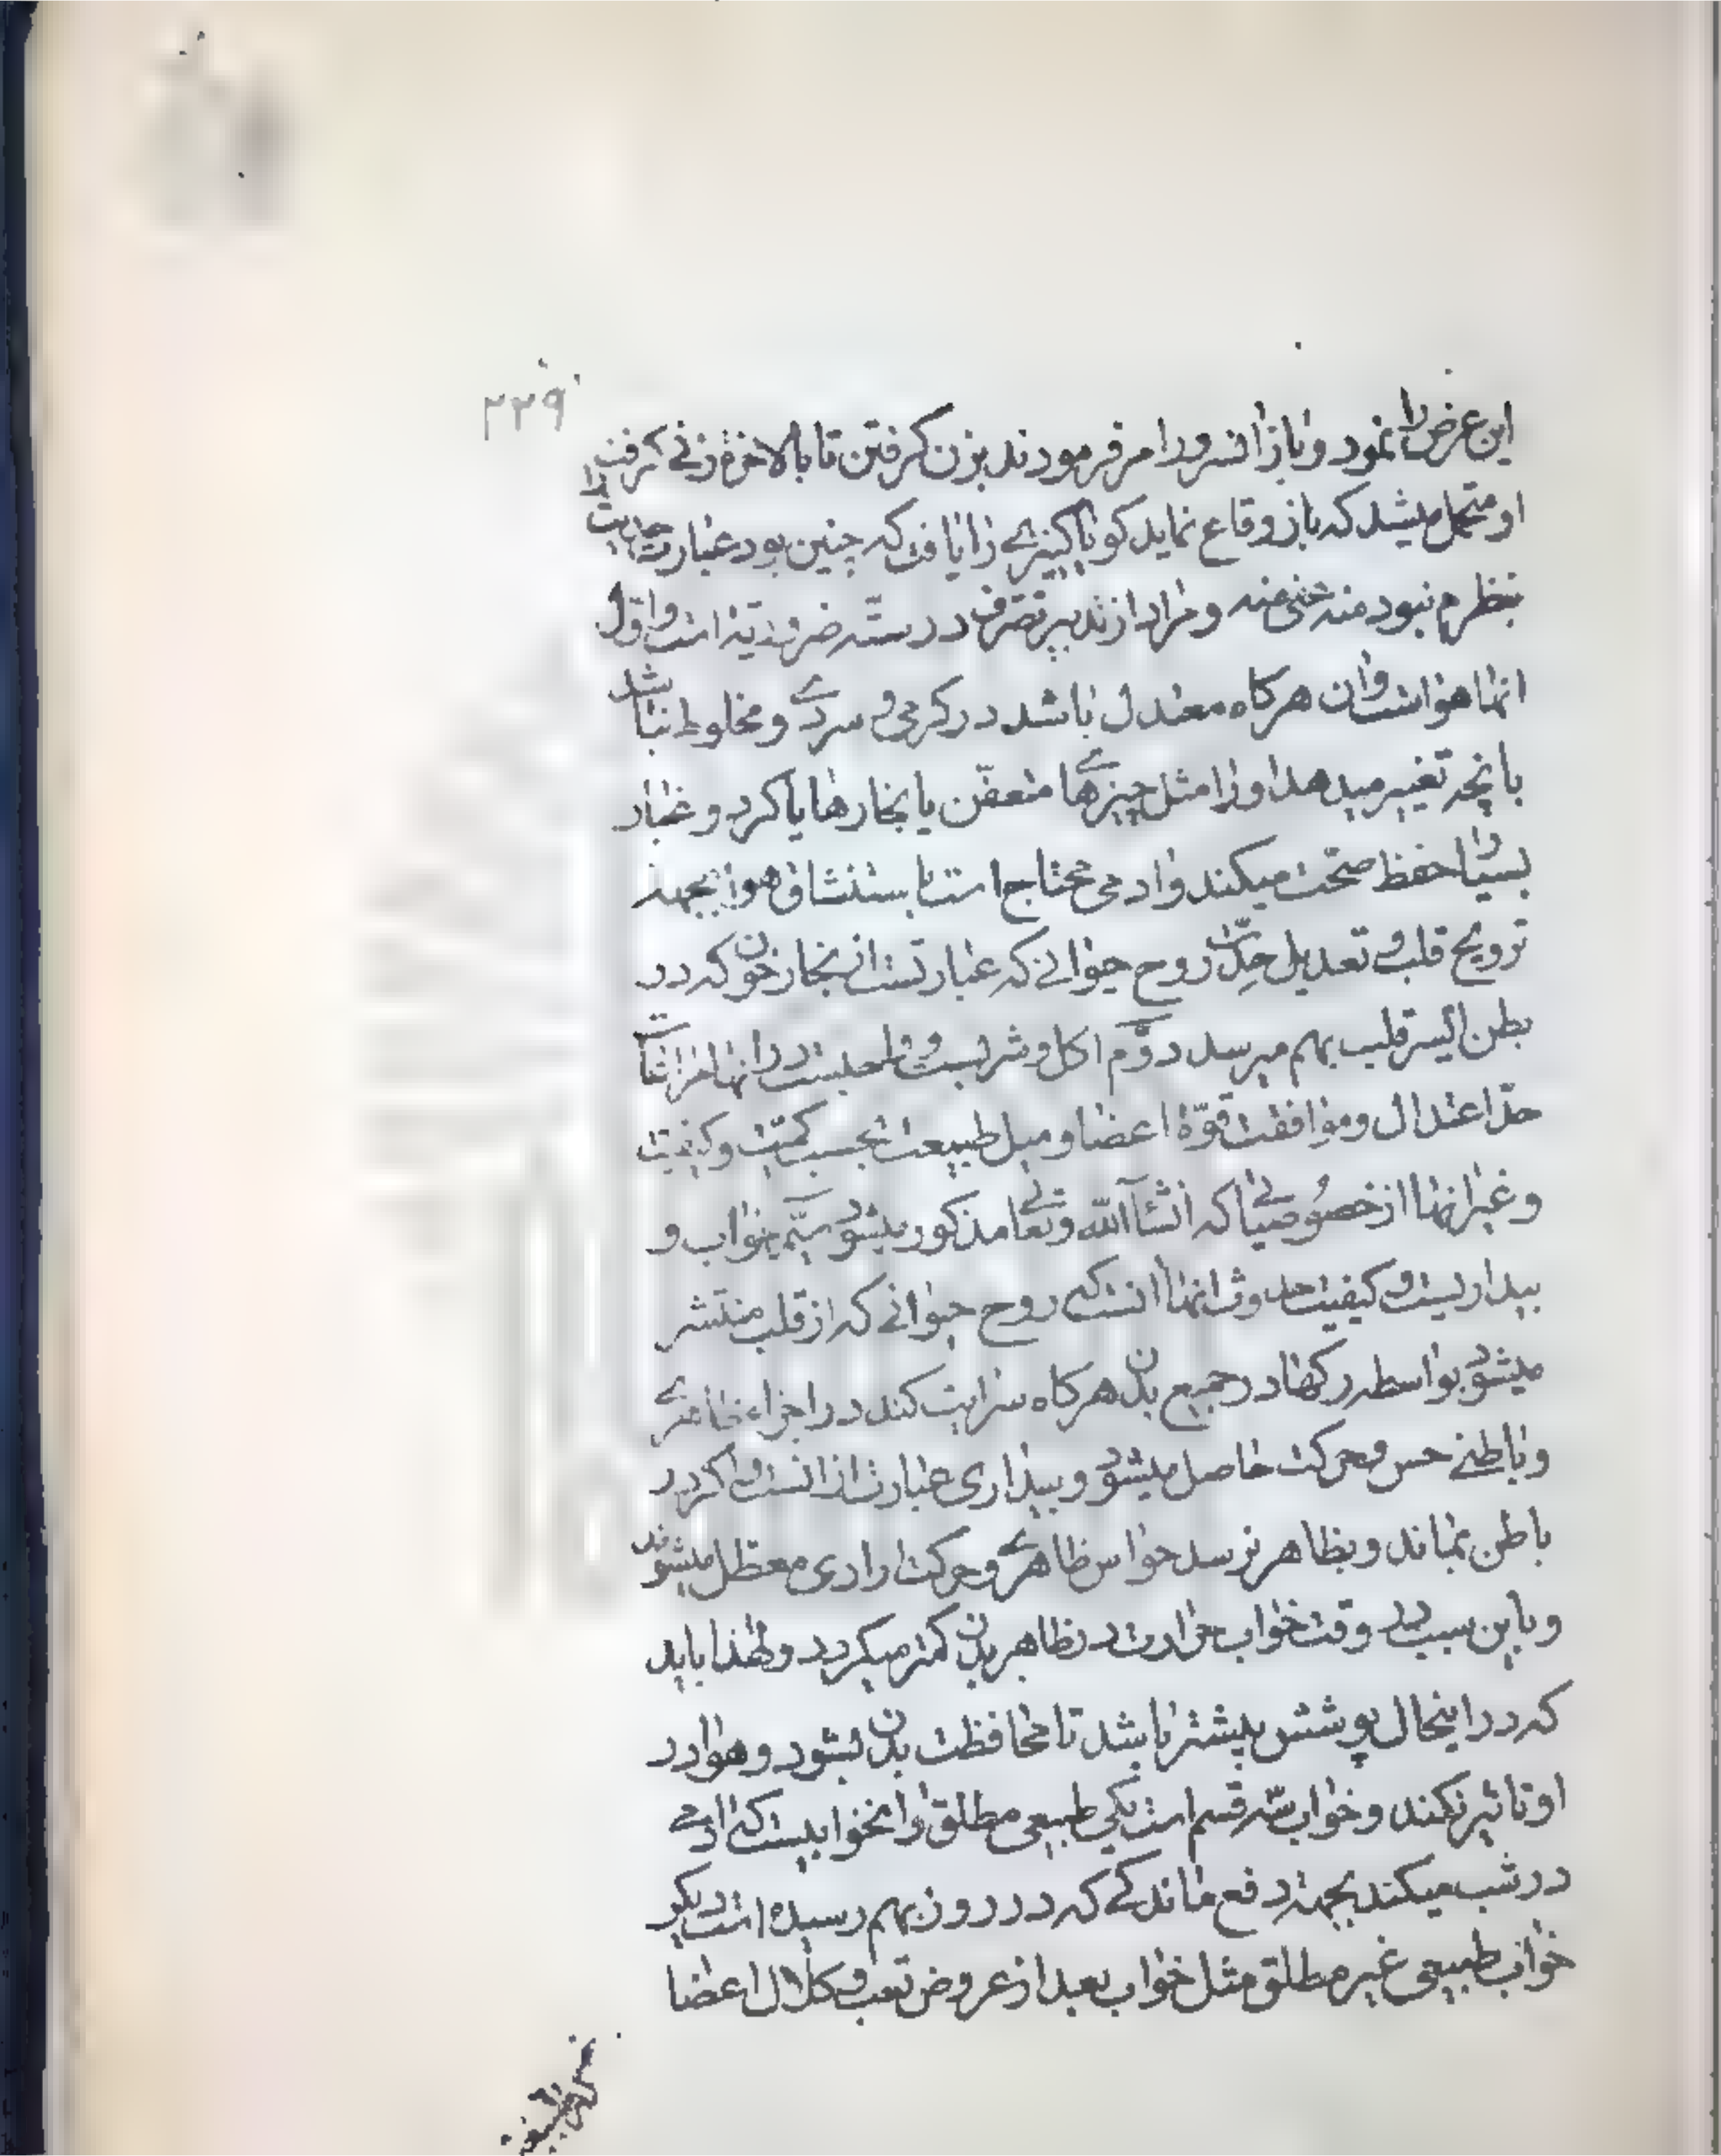 ۲۲۹
این عرض را نمود و باز افسرود امر فرمودند بزن کرفتن تا بالاخره زنی کرفت
او متحمل میشد که باز وقاع نماید کویا کنیزی را یافت که چنین بود عبارت حدیث را
بنظرم نبود منه عفی منه و مراد از تدبیر تصرف در ستّه ضروریّه است و اوّل
انها هواست و ان هرکاه معتدل باشد در کرمی و سردی و مخلوط نباشد
بانچه تغییر میدهد او را مثل چیزهای متعفّن یا بخارها یا کرد و غبار
بسیار حفظ صحّت میکند و ادمی محتاج است باستنشاق هوا بجهة
ترویح قلب و تعدیل حدّت روح حیوانی که عبارتست از بخار خون که در
بطن ایسر قلب بهم میرسد دوّم اکل و شربست و در انها مراعات
حدّ اعتدال و موافقت قوّة اعضا و میل طبیعت بحسب کمیّت و کیفیّت
و غیر انها از خصوصیاتی که انشآءالله وتعالی مذکور میشود سیّم خواب و
بیداریست و کیفیت حدوث انها انست که روح حیوانی که از قلب منتشر
میشود بواسطه رکها در جمیع بدن هرکاه سرایت کند در اجزاء ظاهری
و باطنی حس و حرکت حاصل میشود و بیداری عبارت از انست و اکر در
باطن بماند و بظاهر نرسد حواس ظاهری و حرکت ارادی معطل میشوند
و باین سبب در وقت خواب حرارت در ظاهر بدن کمتر میکردد و لهذا باید
که در اینحال پوشش بیشتر باشد تا محافظت بدن بشود و هوا در
او تاثیر نکند و خواب سه قسم است یکی طبیعی مطلق و انخوابیست که ادمی
در شب میکند بجهة دفع ماندکی که در درون بهم رسیده است دیکر
خواب طبیعی غیر مطلق مثل خواب بعد از عروض تعب و کلال اعضا